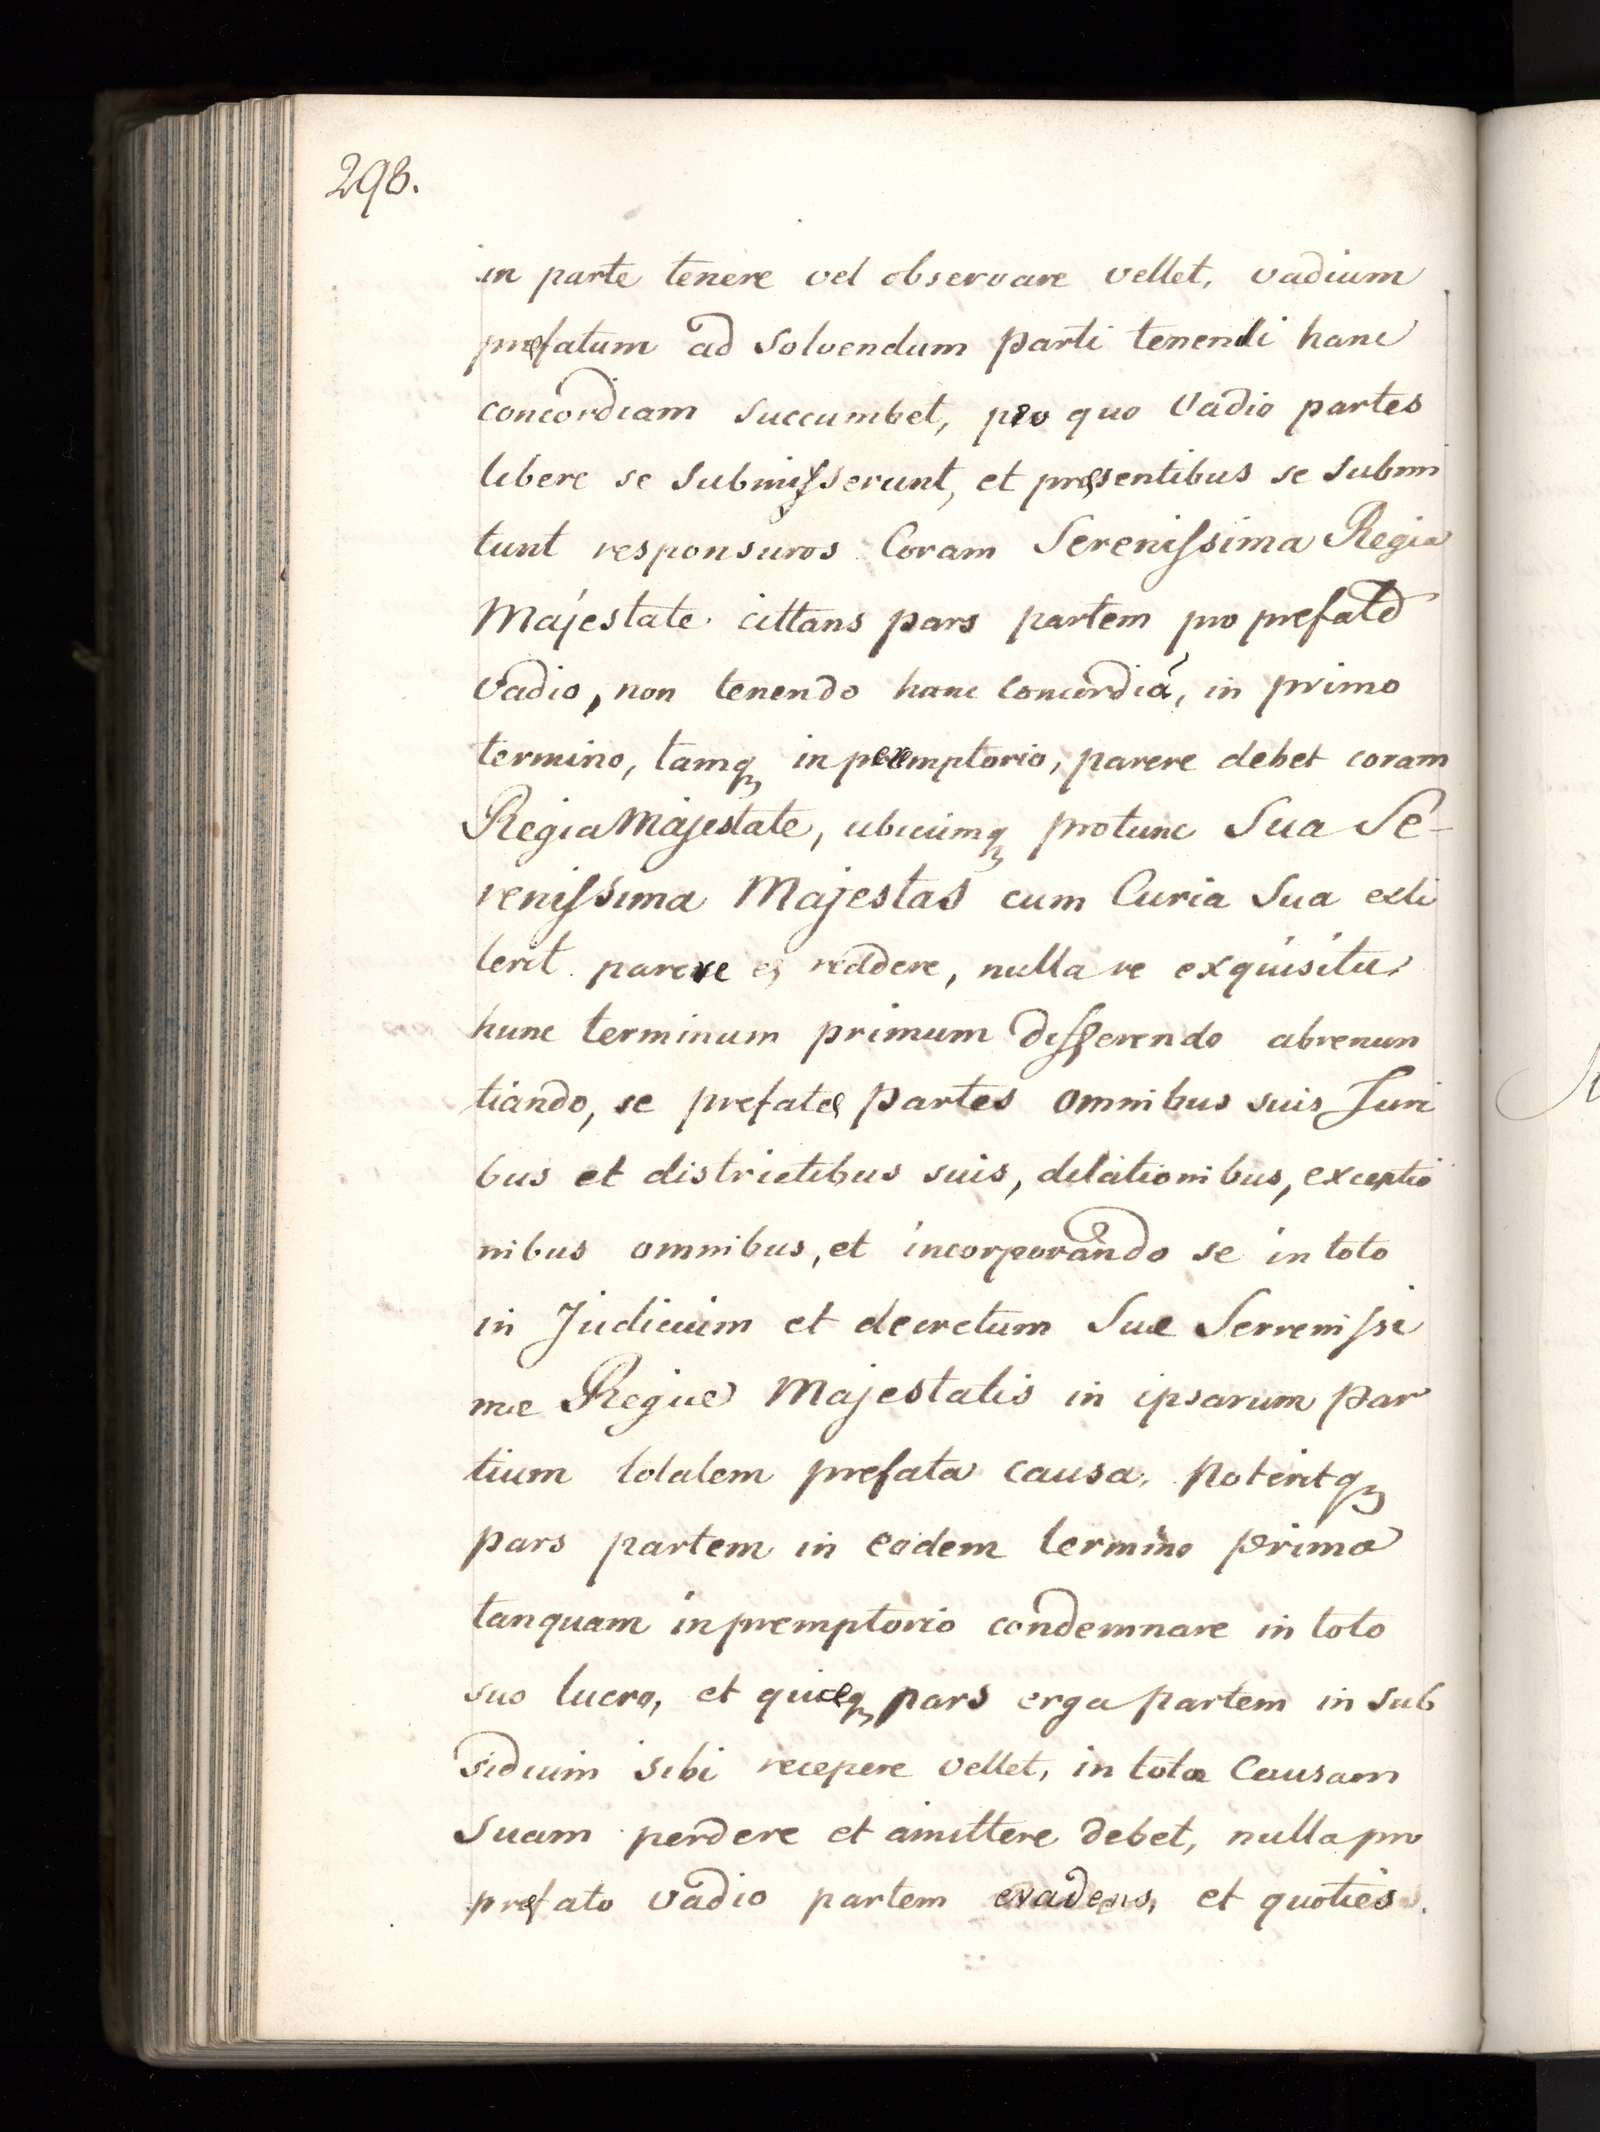 298.
in parte tenere vel observare vellet, vadium
præfatum ad solvendum parti tenendi hanc
concordiam succumbet, pro quo Vadio partes
libere se submisserunt, et præsentibus se submi
tunt responsuros Coram Serenissima Regia
Majestate cittans pars partem pro prefato
Vadio, non tenendo hanc concordiã, in primo
termino, tamqꝫ in peremptorio, parere debet coram
Regia Majestate, ubicumqꝫ protunc Sua Se-
renissima Majestas cum Curia Sua exti
terit parere reddere, nulla re exquisita
hunc terminum primum differendo abrenun
tiando, se prefatæ partes omnibus suis Juri
bus et districtibus suis, dilationibus, exceptio
nibus omnibus, et incorporando se in toto
in Judicium et decretum Suæ Serrenissi
mæ Regiæ Majestatis in ipsarum par
tium totalem prefata causa. Poteritqꝫ
pars partem in eodem termino primo
tanquam in premptorio condemnare in toto
suo lucro, et pars erga partem in sub
sidium sibi recepere vellet, in toto Causam
Suam perdere et amittere debet, nulla pro
præfato vadio partem evadens, et quoties